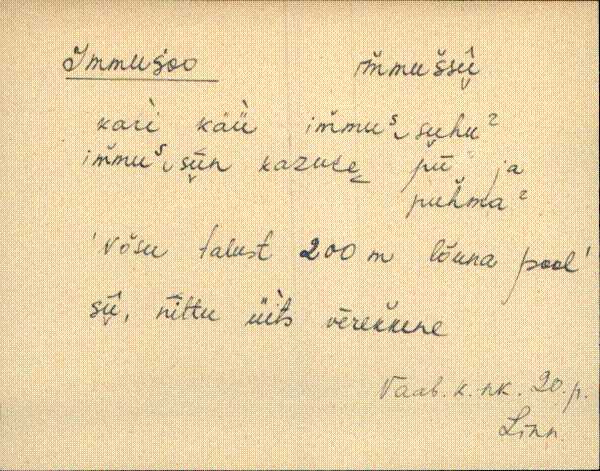 Immusoo im̆mušsŭ̬
kaŕi käü im̆muˢ suhuˀ
im̆muˢ sü̬n kazuse pü ja
puh̆maˀ
'Võsu talust 200 m lõuna pool'
sŭ̬, nittu üits vērek̆kene
Vaab. k. nk. 20. p.
Linn.